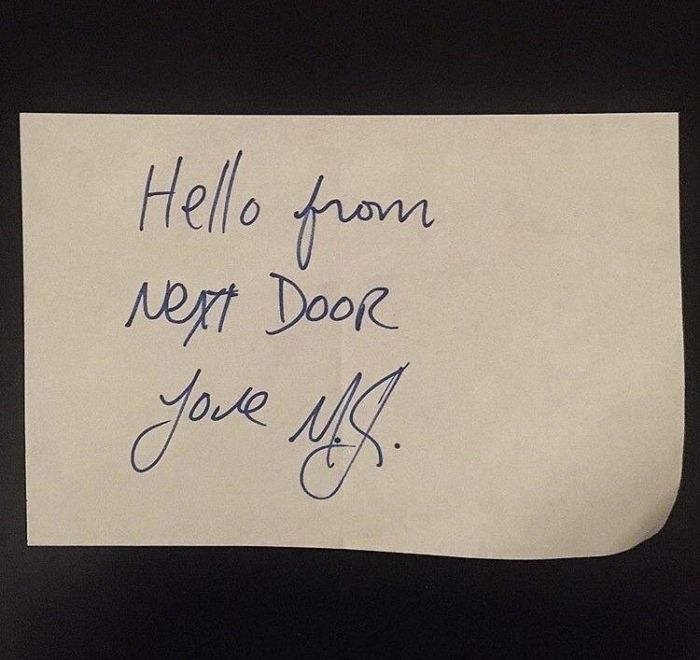 Hello from
Next DooR
Love M.J.